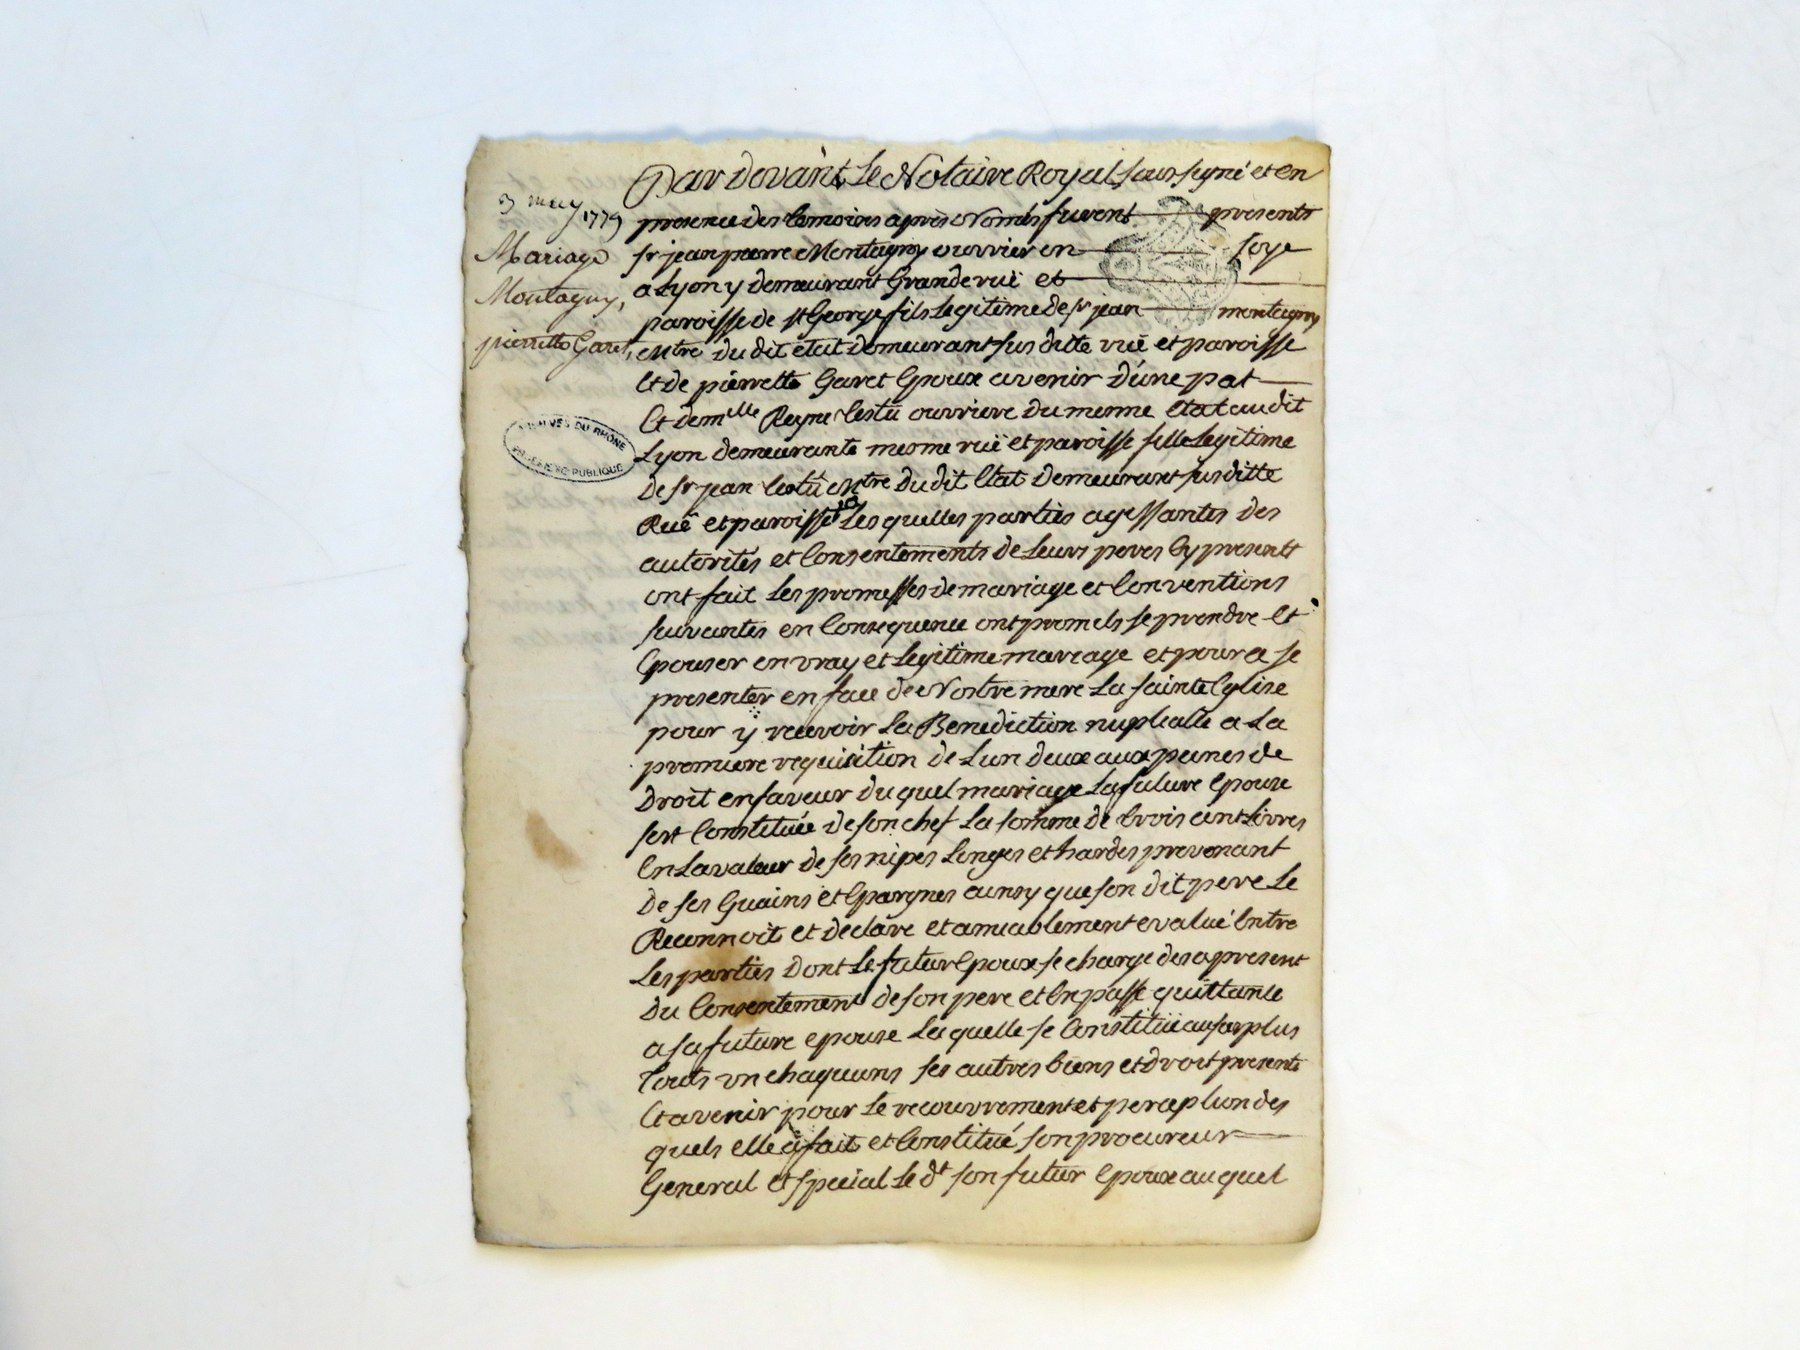 3 may 1779
Mariage
Montagny,
pierrette Garet,
ARCHIVES DU RHÔNE
PROPRIÉTÉ PUBLIQUE
Par devant Le Notaire Royal, soussigné et en
presence des temoins après Només furent presents
sr jean pierre Montagny ouvrier en soye
a Lyon y demeurant Grande rüe et
paroisse de st George fils Legitime de sr jean montagny
mtre du dit état demeurant sus ditte rüe et paroisse
et de pierrette Garet Epoux avenir d'úne pat
Et demlle Reyne ouvriere du mesme Etat audit
Lyon demeurante mesme rüe et paroisse fille Legitime
de sr jean mtre du dit Etat demeurant sus ditte
Rüe et paroisse Les quelles parties agissantes des
autorités et Consentements de Leurs peres Cy presents
ont fait Les promesses de mariage et Conventions
suivantes en Consequence ont promels se prendre et
Epouser en vray et Legitime mariage et pour ce se
presenter en face de Nostre mere La sainte Eglise
pour y recevoir La Benediction nuptialle a La
premiere requisition de Lun deux aux peines de
Droit en faveur du quel mariage La future Epouse
sest Constituée de son chef La somme de trois cent Livres
En La valeur de ses nipes Linges et hardes provenant
De ses Guains et Epargnes ainsy que son dit pere Le
Reconnoit et declare et amiablement evalué Entre
Les parties dont Le futur Epoux se charge des a present
du Consentement de son pere et En passe quittance
a sa future epouse La quelle se Constitüe au surplus
touts un chaquuns ses autres biens et droit presents
Et avenir pour Le recouvrement et perception des
quels elle à fait et Constitué son procureur
General et special Le dt son futur Epoux au quel